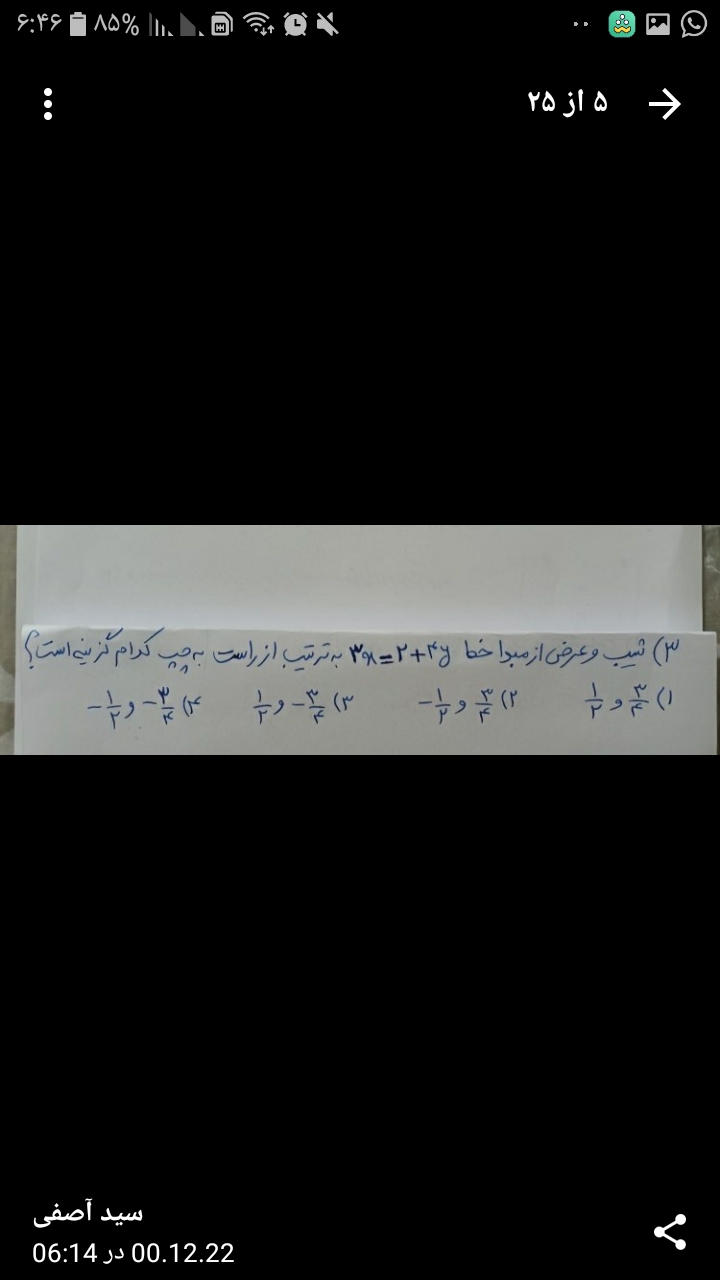 ۶:۴۶ ۸۵%
۵ از ۲۵
۳) شیب و عرض از مبدا خط ۳x=۲+۴y به ترتیب از راست به چپ کدام گزینه است؟
۱) ۳/۴ و ۱/۲ ۲) ۳/۴ و -۱/۲ ۳) -۳/۴ و ۱/۲ ۴) -۳/۴ و -۱/۲
سید آصفی
00.12.22 در 06:14